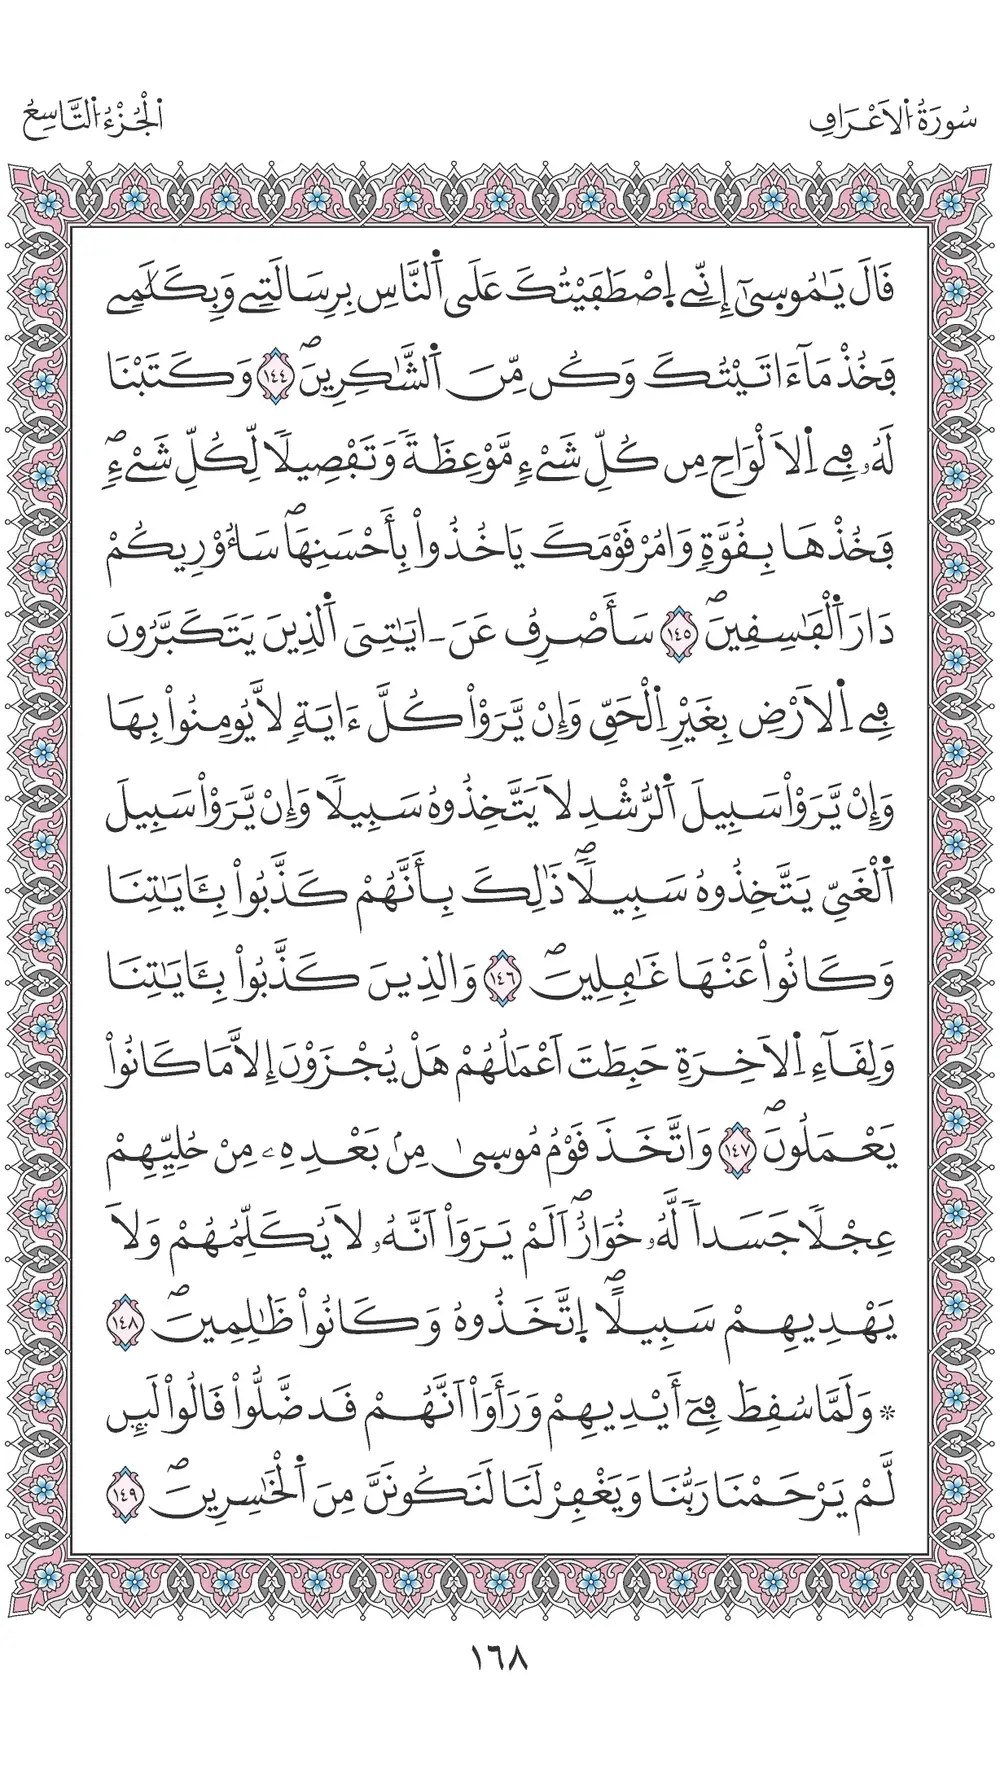 سُورَةُ اَ۬لَاعْرَافِ
اَ۬لْجُزْءُ اُ۬لتَّاسِعُ
قَالَ يَٰمُوس۪ىٰٓ إِنِّے اِ۪صْطَفَيْتُكَ عَلَى اَ۬لنَّاسِ بِرِسَالَتِے وَبِكَلَٰمِے
فَخُذْ مَآ ءَاتَيْتُكَ وَكُن مِّنَ اَ۬لشَّٰكِرِينَۖ ١٤٤ وَكَتَبْنَا
لَهُۥ فِے اِ۬لَالْوَاحِ مِن كُلِّ شَےْءٖ مَّوْعِظَةٗ وَتَفْصِيلاٗ لِّكُلِّ شَےْءٖۖ
فَخُذْهَا بِقُوَّةٖ وَامُرْ قَوْمَكَ يَاخُذُواْ بِأَحْسَنِهَاۖ سَأُوْرِيكُمْ
دَارَ اَ۬لْفَٰسِقِينَۖ ١٤٥ سَأَصْرِفُ عَنَ ـ ايَٰتِىَ اَ۬لذِينَ يَتَكَبَّرُونَ
فِے اِ۬لَارْضِ بِغَيْرِ اِ۬لْحَقِّ وَإِنْ يَّرَوْاْ كُلَّ ءَايَةٖ لَّا يُومِنُواْ بِهَا
وَإِنْ يَّرَوْاْ سَبِيلَ اَ۬لرُّشْدِ لَا يَتَّخِذُوهُ سَبِيلاٗ وَإِنْ يَّرَوْاْ سَبِيلَ
اَ۬لْغَىِّ يَتَّخِذُوهُ سَبِيلاٗۖ ذَٰلِكَ بِأَنَّهُمْ كَذَّبُواْ بِـَٔايَٰتِنَا
وَكَانُواْ عَنْهَا غَٰفِلِينَۖ ١٤٦ وَالذِينَ كَذَّبُواْ بِـَٔايَٰتِنَا
وَلِقَآءِ اِ۬لَاخِرَةِ حَبِطَتَ اَعْمَٰلُهُمْ هَلْ يُجْزَوْنَ إِلَّا مَا كَانُواْ
يَعْمَلُونَۖ ١٤٧ وَاتَّخَذَ قَوْمُ مُوس۪ىٰ مِنۢ بَعْدِهِۦ مِنْ حُلِيِّهِمْ
عِجْلاٗ جَسَداٗ لَّهُۥ خُوَارٌۖ اَلَمْ يَرَوَاْ اَنَّهُۥ لَا يُكَلِّمُهُمْ وَلَا
يَهْدِيهِمْ سَبِيلاًۖ اِ۪تَّخَذُوهُ وَكَانُواْ ظَٰلِمِينَۖ ١٤٨
* وَلَمَّا سُقِطَ فِےٓ أَيْدِيهِمْ وَرَأَوَاْ اَنَّهُمْ قَد ضَّلُّواْ قَالُواْ لَئِن
لَّمْ يَرْحَمْنَا رَبُّنَا وَيَغْفِرْ لَنَا لَنَكُونَنَّ مِنَ اَ۬لْخَٰسِرِينَۖ ١٤٩
١٦٨